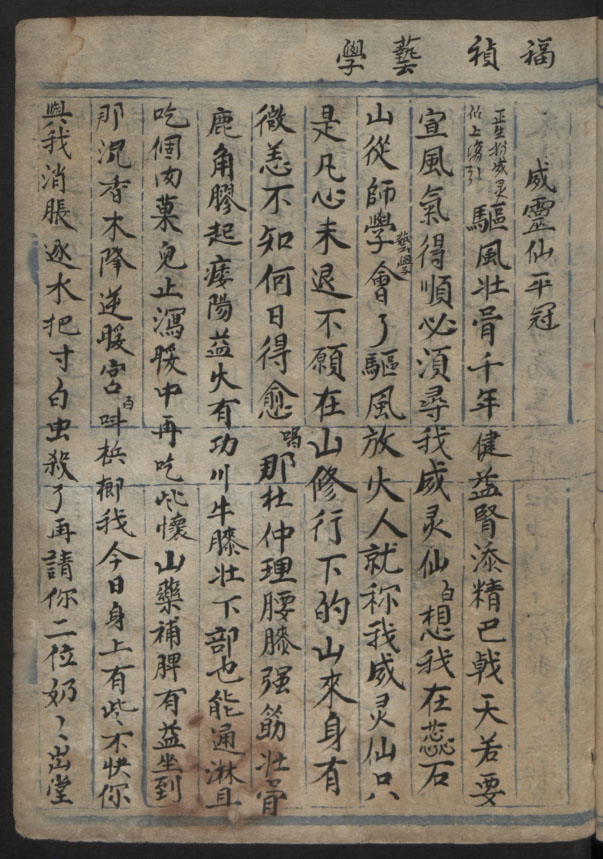 福禎藝學
威靈仙平冠
正生扮威灵仙上滚引驅風壯骨千年健益腎添精巴戟天若要
宣風氣得順必須尋我威灵仙白想我在蕊石
山從師學藝學會了驅風放火人就称我威灵仙只
是凡心未退不願在山修行下的山來身有
微恙不知何日得愈唱那杜仲理腰膝强筋壯骨
鹿角膠起痿陽益火有功川牛膝壯下部也能通淋且
吃個肉菓兒止瀉腹中再吃些懷山藥補脾有益坐到
那沉香木降逆腰宫白叫梹榔我今日身上有些不快你
與我消脹逐水把寸白虫殺了再請你二位奶〻出堂